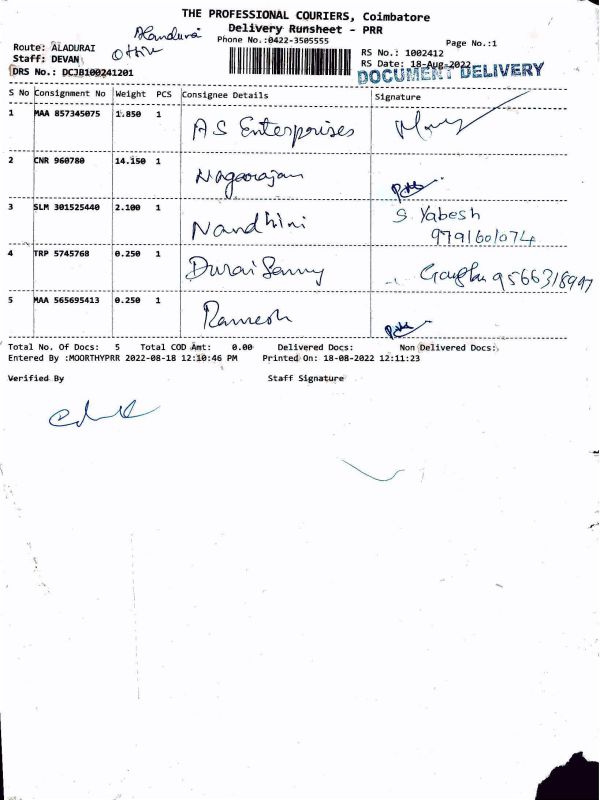 THE PROFESSIONAL COURIERS, Coimbatore
Delivery Runsheet - PRR
Phone No.:0422-3505555
Page No.:1
Alandurai
Route: ALADURAI
Staff: DEVAN
DRS No.: DCJB100241201
RS No.: 1002412
RS Date: 18-Aug-2022
DOCUMENT DELIVERY
S No Consignment No Weight PCS Consignee Details Signature
1 MAA 857345075 1.850 1 A S Enterprises
2 CNR 960780 14.150 1 Nagaorajan
3 SLM 301525440 2.100 1 Nandhini S. Yabesh
9791601074
4 TRP 5745768 0.250 1 Durai Samy
5 MAA 565695413 0.250 1 Ramesh
Total No. Of Docs: 5 Total COD Amt: 0.00 Delivered Docs: Non Delivered Docs:
Entered By :MOORTHYPRR 2022-08-18 12:10:46 PM Printed On: 18-08-2022 12:11:23
Verified By Staff Signature